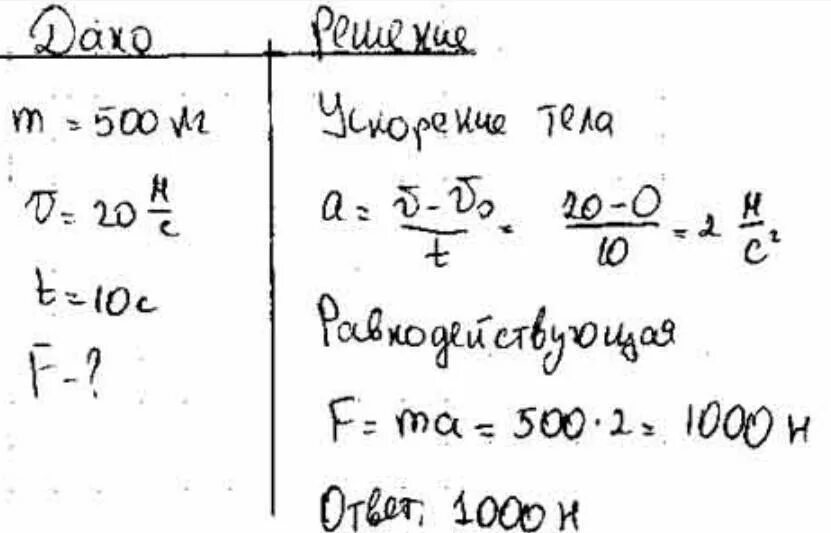 Дано
m = 500 кг
v = 20 м/с
t = 10 с
F - ?
Решение
Ускорение тела
a = (v - v₀)/t = (20 - 0)/10 = 2 м/с²
Равнодействующая
F = ma = 500 · 2 = 1000 Н
Ответ. 1000 Н